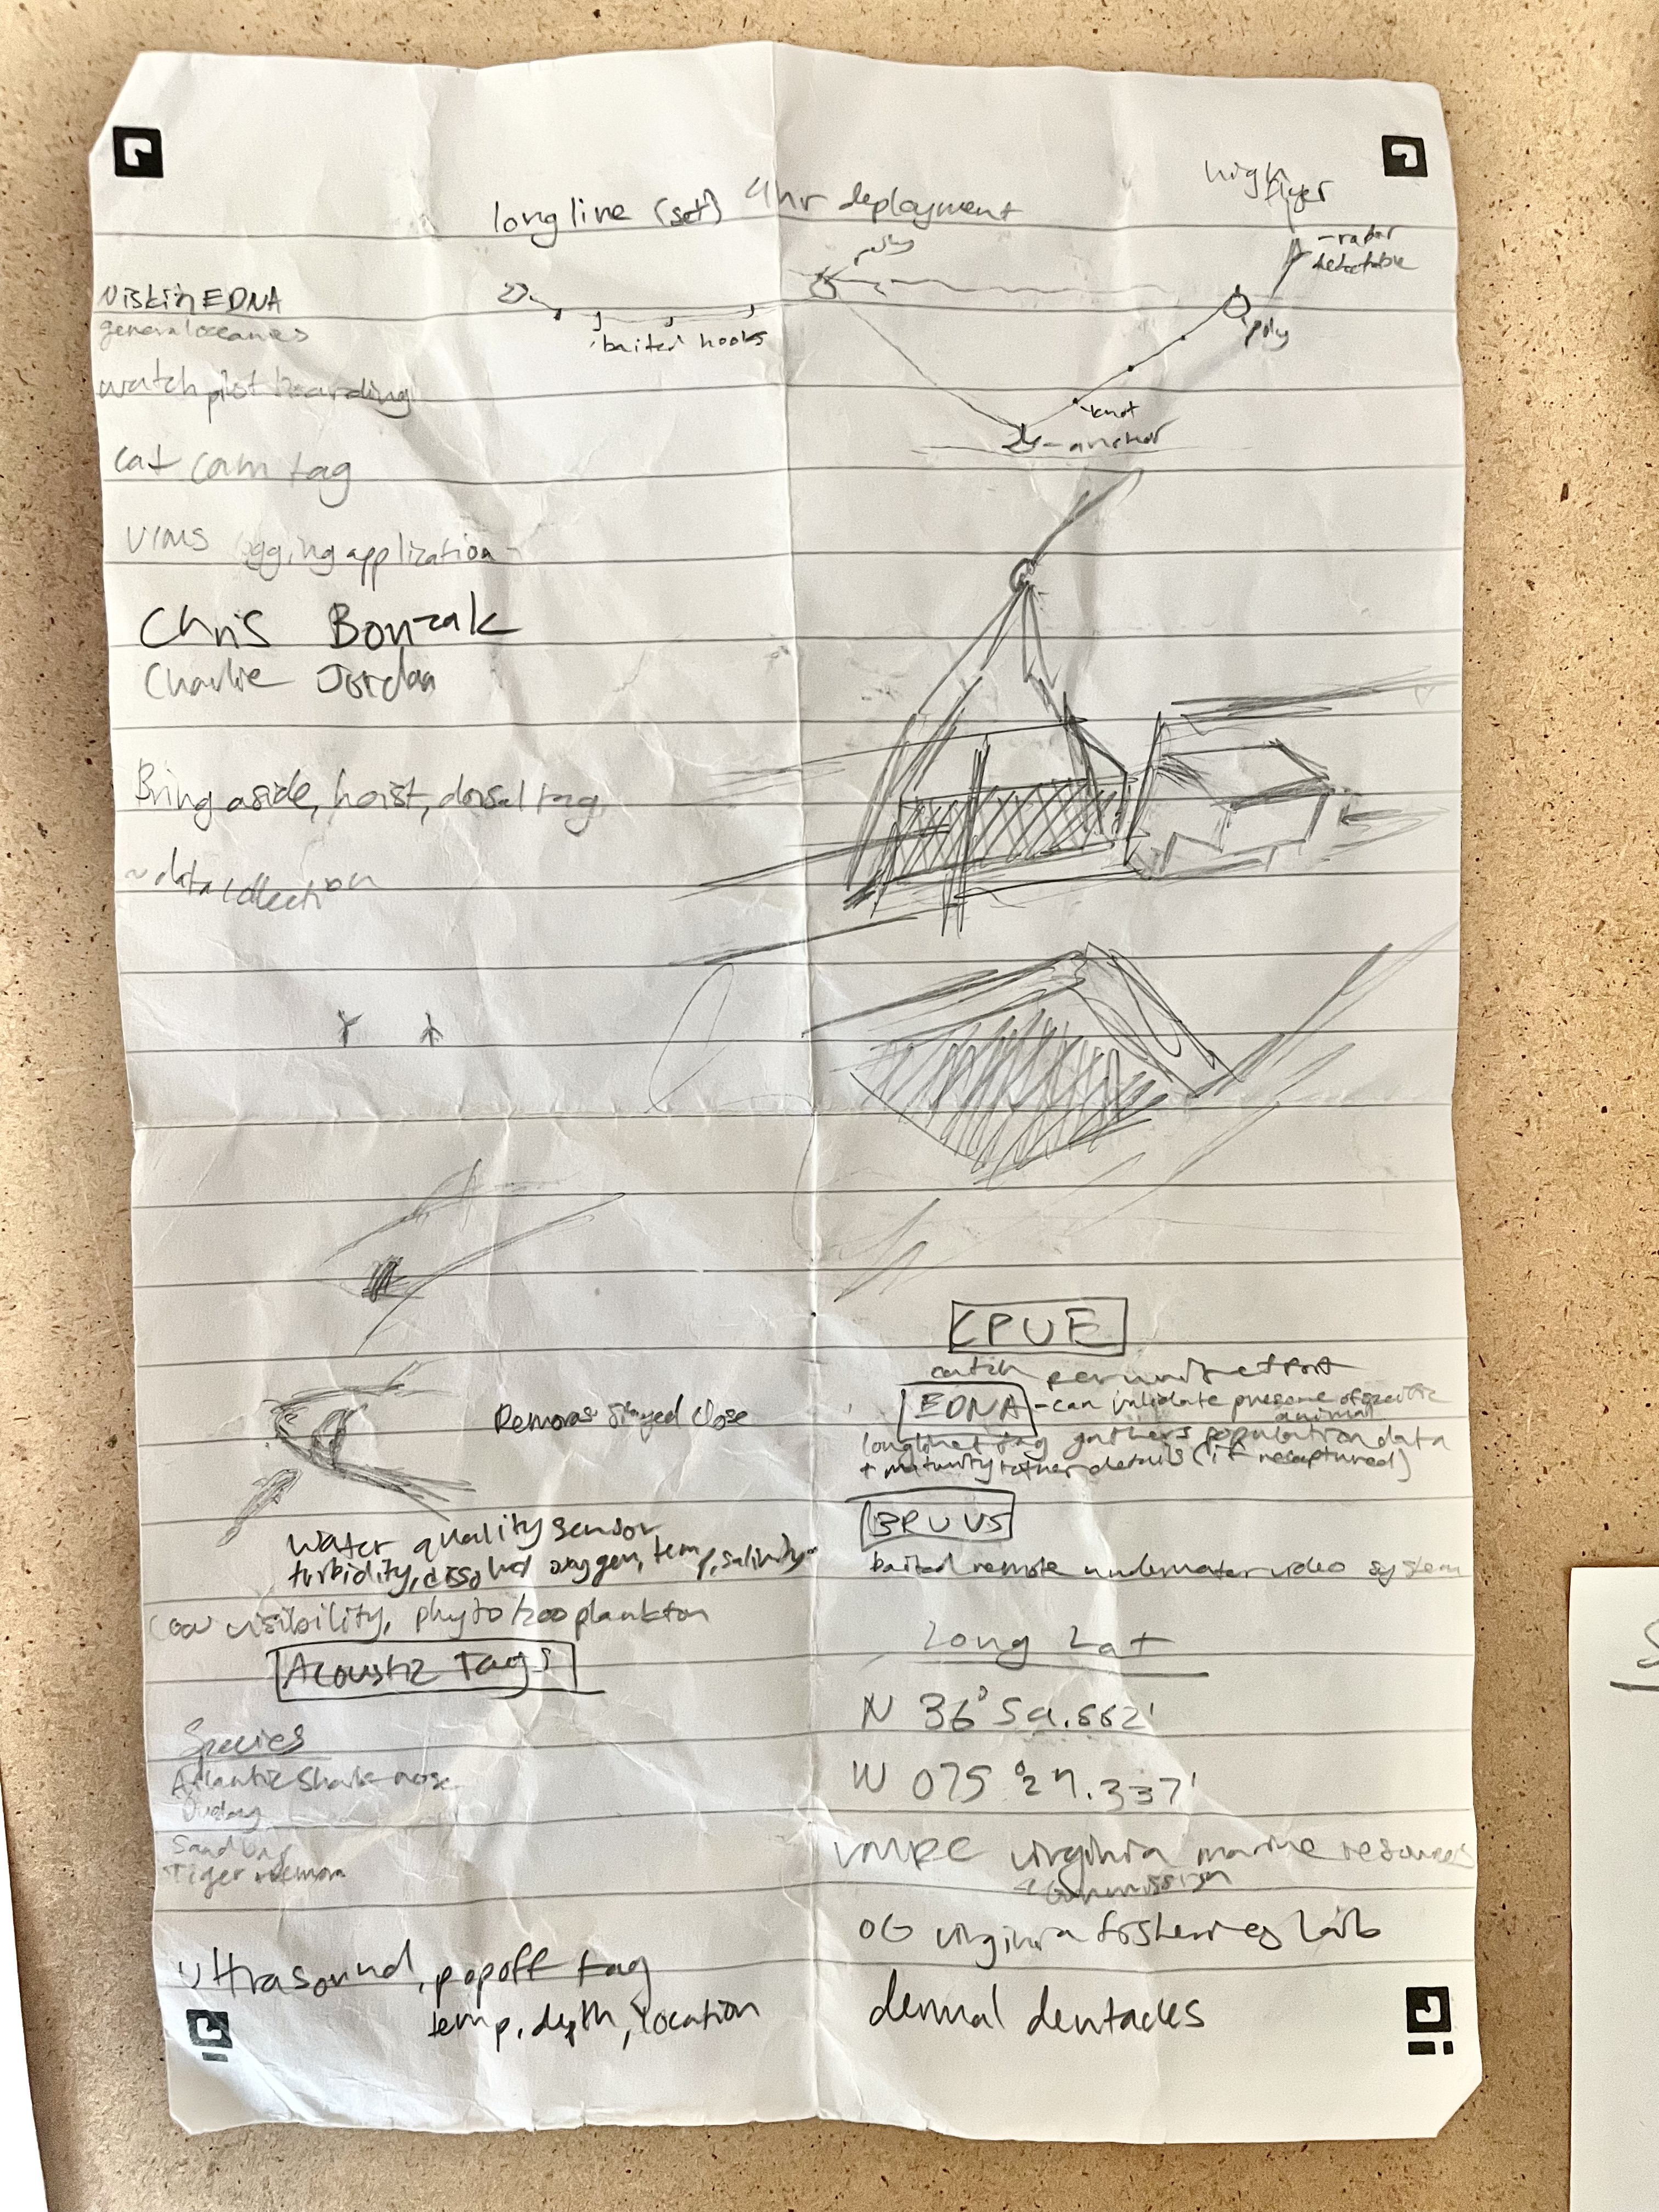 high
flyer
longline (set) 4hr deployment
poly
-radar
detectable
Niskin EDNA
general oceanics
baited hooks
poly
watch pilot boarding
knot
-anchor
cat cam tag
VIMS logging application
Chris Bonzak
Charlie Jordan
Bring aside, hoist, dorsal tag,
~data collection
CPUE
catch per unit effort
EDNA -can validate presence of specific
animal
Remoras stayed close
longline tag gathers population data
+ maturity + other details (if recaptured)
BRUVS
baited remote underwater video system
Water quality sensor
turbidity, dissolved oxygen, temp, salinity
low visibility, phyto/zooplankton
Acoustic Tags
Long Lat
N 36° 59.662'
W 075° 27.337'
Species
Atlantic Shark nose
Tiger
VMRC virginia marine resources
commission
OG virginia fisheries lab
ultrasound, popoff tag
temp, depth, location
dermal dentacles